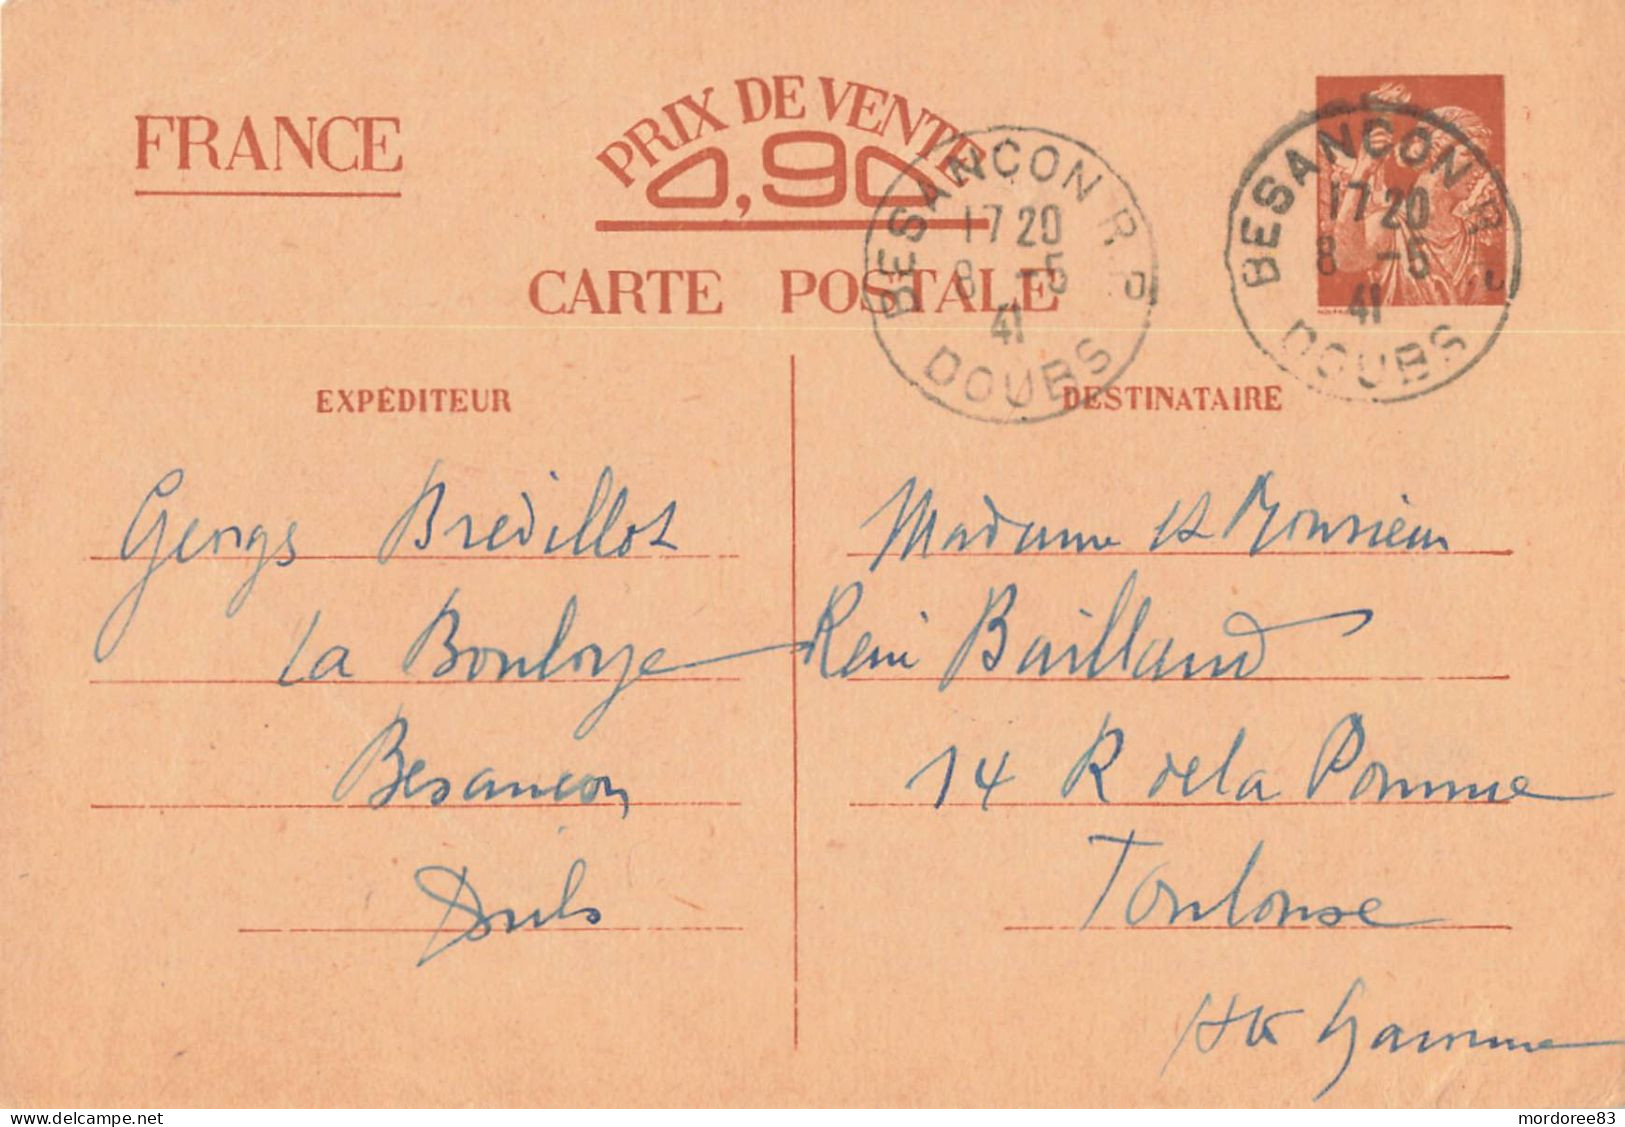 FRANCE
PRIX DE VENTE
0,90
CARTE POSTALE
BESANÇON R.P.
17 20
8 -5
41
DOUBS
BESANÇON R.P.
17 20
8 -5
41
DOUBS
EXPÉDITEUR
Georges Bredillot
La Bouloye
Besançon
Doubs
DESTINATAIRE
Madame et Monsieur
René Baillaud
14 R de la Pomme
Toulouse
Hte Garonne
mordoree83